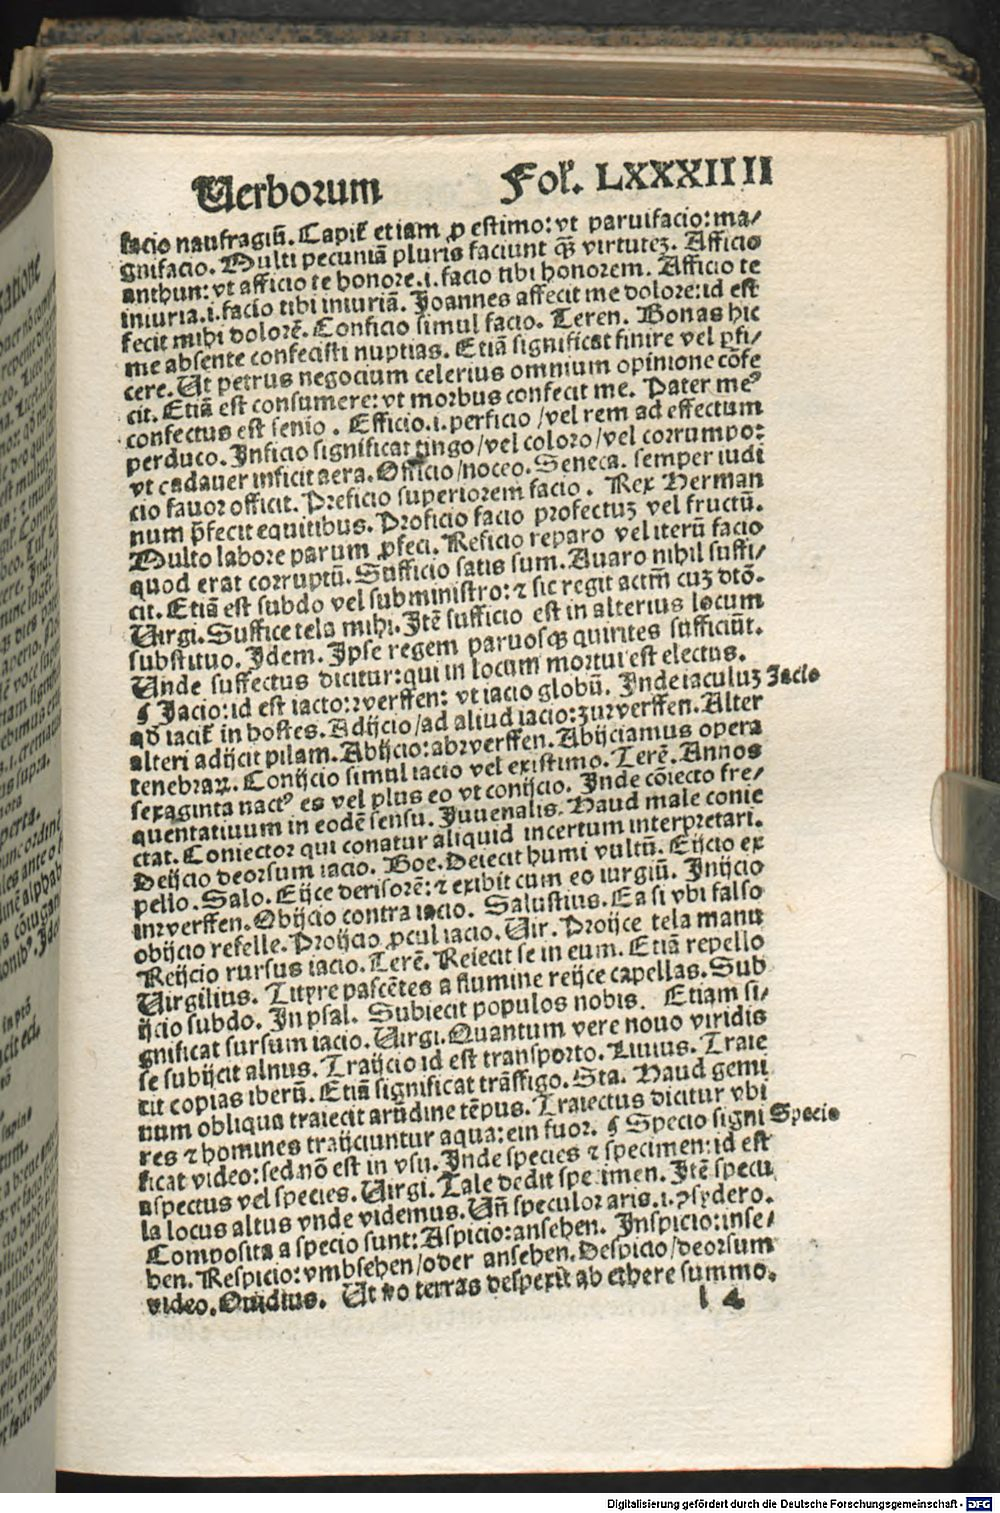 Verborum Fol. LXXXIIII
facio naufragiũ. Capit̃ etiam ꝓ estimo: vt paruifacio: ma/
gnifacio. Multi pecuniã pluris faciunt q̃ꝫ virtuteꝫ. Afficio
anthun: vt afficio te honore .i. facio tibi honorem. Afficio te
iniuria .i. facio tibi iniuriã. Joannes affecit me dolore: id est
fecit mihi dolorẽ. Conficio simul facio. Teren. Bonas hic
me absente confecisti nuptias. Etiã significat finire vel ꝑfi/
cere. Ut petrus negocium celerius omnium opinione cõfe
cit. Etiã est consumere: vt morbus confecit me. Pater meꝰ
confectus est senio. Efficio .i. perficio / vel rem ad effectum
perduco. Inficio significat tingo / vel coloro / vel corrumpo:
vt cadauer inficit aera. Officio / noceo. Seneca. semper iudi
cio fauor officit. Preficio superiorem facio. Rex Herman
num p̃fecit equitibus. Proficio facio profectuꝫ vel fructũ.
Multo labore parum ꝓfeci. Reficio reparo vel iterũ facio
quod erat corruptũ. Sufficio satis sum. Auaro nihil suffi/
cit. Etiã est subdo vel subministro: ⁊ sic regit actm̃ cuꝫ dtõ.
Uirgi. Suffice tela mihi. Itẽ sufficio est in alterius locum
substituo. Idem. Ipse regem paruosqꝫ quirites sufficiũt.
Unde suffectus dicitur: qui in locum mortui est electus.
¶ Jacio: id est iacto: ꝛverffen: vt iacio globũ. Inde iaculuꝫ Jacio
qđ iacit̃ in hostes. Adijcio / ad aliud iacio: zuꝛverffen. Alter
alteri adijcit pilam. Abijcio: abꝛverffen. Abijciamus opera
tenebraꝝ. Conijcio simul iacio vel existimo. Terẽ. Annos
sexaginta nactꝰ es vel plus eo vt conijcio. Inde cõiecto fre/
quentatiuum in eodẽ sensu. Juuenalis. Haud male conie
ctat. Coniector qui conatur aliquid incertum interpretari.
Deijcio deorsum iacio. Boe. Deiecit humi vultũ. Eijcio ex
pello. Salo. Eijce derisorẽ: ⁊ exibit cum eo iurgiũ. Inijcio
inꝛverffen. Obijcio contra iacio. Salustius. Ea si vbi falso
obijcio refelle. Proijcio ꝓcul iacio. Uir. Proijce tela manu
Reijcio rursus iacio. Terẽ. Reiecit se in eum. Etiã repello
Uirgilius. Tityre pascẽtes a flumine reijce capellas. Sub
ijcio subdo. In psal. Subiecit populos nobis. Etiam si/
gnificat sursum iacio. Uirgi. Quantum vere nouo viridis
se subijcit alnus. Traijcio id est transporto. Liuius. Traie
cit copias iberũ. Etiã significat trãsfigo. Sta. Haud gemi
num obliqua traiecit arũdine tẽpus. Traiectus dicitur vbi
res ⁊ homines traijciuntur aqua: ein fuor. ¶ Specio signi Specio
ficat video: sed nõ est in vsu. Inde species ⁊ specimen: id est
aspectus vel species. Uirgi. Tale dedit specimen. Itẽ specu
la locus altus vnde videmus. Uñ speculor aris .i. ꝯsydero.
Composita a specio sunt: Aspicio: ansehen. Inspicio: inse/
hen. Respicio: vmbsehen / oder ansehen. Despicio / deorsum
video. Ouidius. Ut ṽo terras despexit ab ethere summo.
l 4
Digitalisierung gefördert durch die Deutsche Forschungsgemeinschaft - DFG